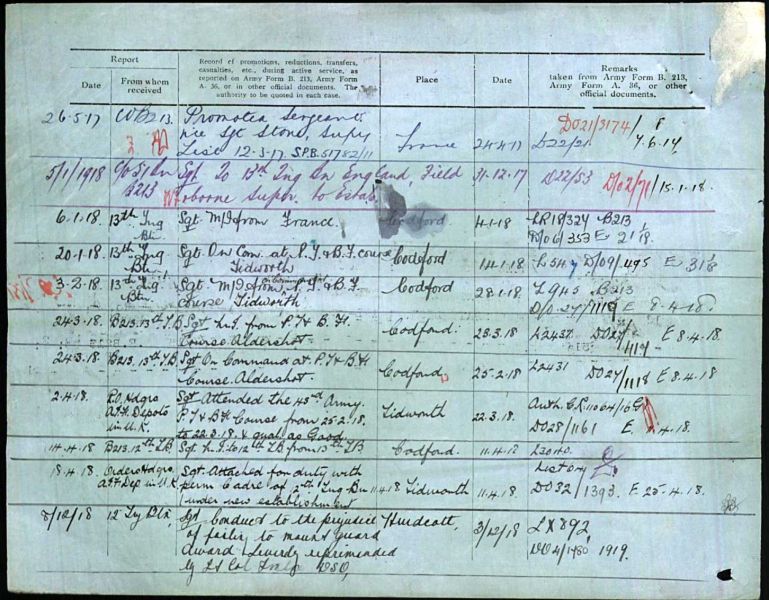 Report
Record of promotions, reductions, transfers,
casualties, etc., during active service, as
reported on Army Form B. 213, Army Form
A. 36, or in other official documents. The
authority to be quoted in each case.
Remarks
taken from Army Form B. 213,
Army Form A. 36, or other
official documents.
Date
From whom
received
Place
Date
26.5.17 B213. Promoted Sergeant France 24.4.17 DO21/3174/
vice Sgt Stone, Supy D22/21 7.6.17
List 12-3-17. S.P.B.51782/11
5/1/1918 Sgt To 13th Tng Bn England, Field 31.12.17 D22/53 D/02/71/15.1.18.
B213 Super. to Estab.
6.1.18 13th Tng Sgt M/I from France. Codford 4.1.18 LR18/324 B213
Btn. D/06/353 E 21/1/18.
20.1.18 13th Tng Sgt On Com. at P.T. & B.F. course Codford 14.1.18 L547 D/09/495 E 31/1/8
Btn. Tidworth
3.2.18 13th Tng Sgt M/I from on Command P.T. & B.F Codford 28.1.18 L945 B213
Btn. Course Tidworth D/O 27/1119 E 8.4.18.
24.3.18. B213.13th T.B Sgt h.I. from P.T & B.F. Codford. 23.3.18 L2437 DO27/1119 E 8.4.18.
Course. Aldershot.
24.3.18. B213.13th T.B Sgt On Command at P.T & B.F Codford 25.2.18 L2431 DO27/1118 E 8.4.18.
Course. Aldershot.
2.4.18. Hdqrs Sgt Attended the 43rd Army. Tidworth 22.3.18. Auth. C.R.11064/16
A.I.F. Depots P.T & B.F Course from 25.2.18. DO28/1161 E .4.18.
in U.K. to 22.3.18 & qual. as Good.
14.4.18 B213.12th T.B Sgt h.I. to 12th T.B from 13th T.B Codford. 11.4.18
18.4.18. Orders Hdqrs Sgt. Attached for duty with Tidworth 11.4.18. DO32/1393. E 25.4.18.
A.I.F Dep in U.K perm Cadre of 12th Tng Bn 11.4.18
(under new establishment
8/12/18 12 Tng Btn Sgt Conduct to the prejudice Hurdcott, 3/12/18 LX892,
of failing to mount Guard DO4/1980 1919.
Award Severely reprimanded
by Lt Col DSO,